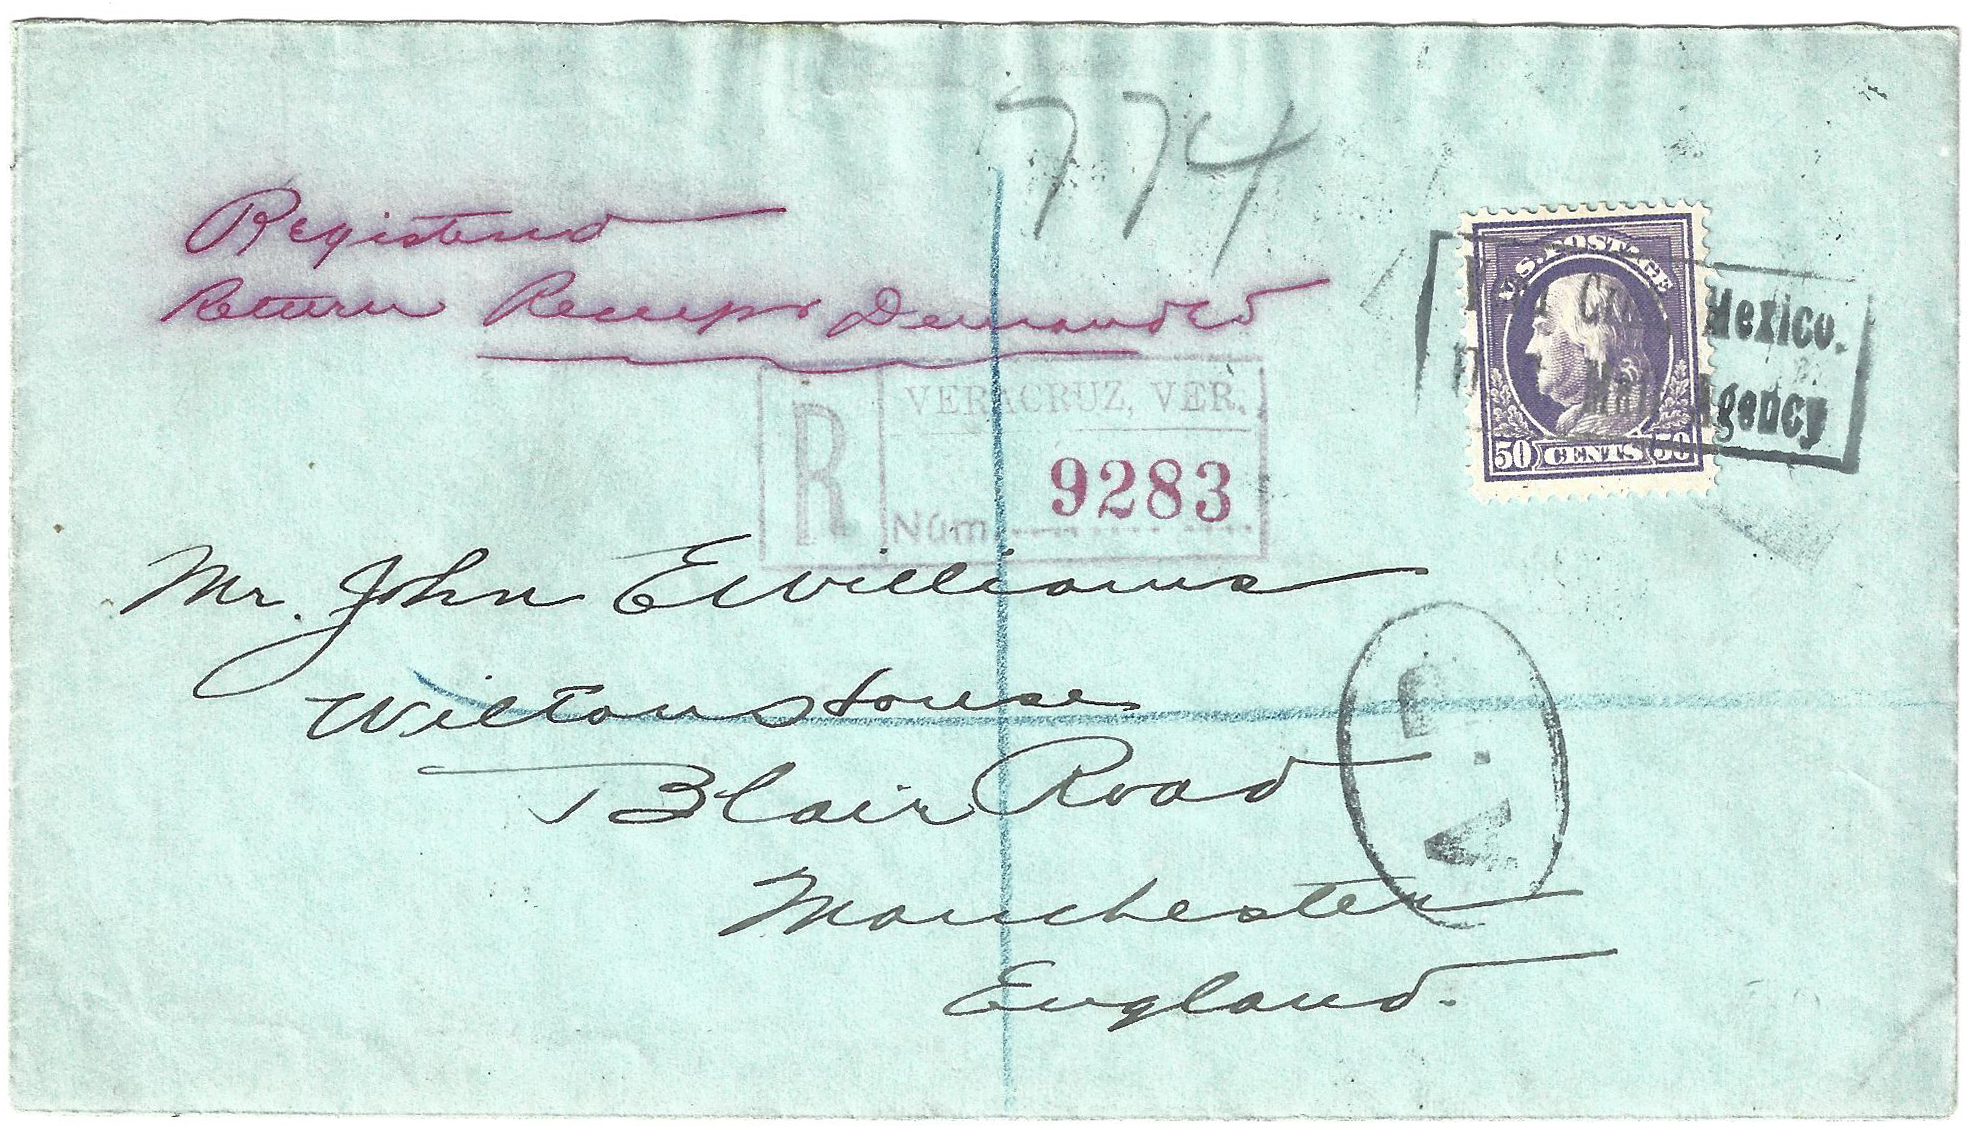 774
Registered
Return Receipt Demanded
U.S. POSTAGE
50 CENTS 50
Mexico.
Mail Agency
R
VERACRUZ, VER.
Núm. 9283
Mr. John E Williams
Wilton House
Blair Road
Manchester
England.